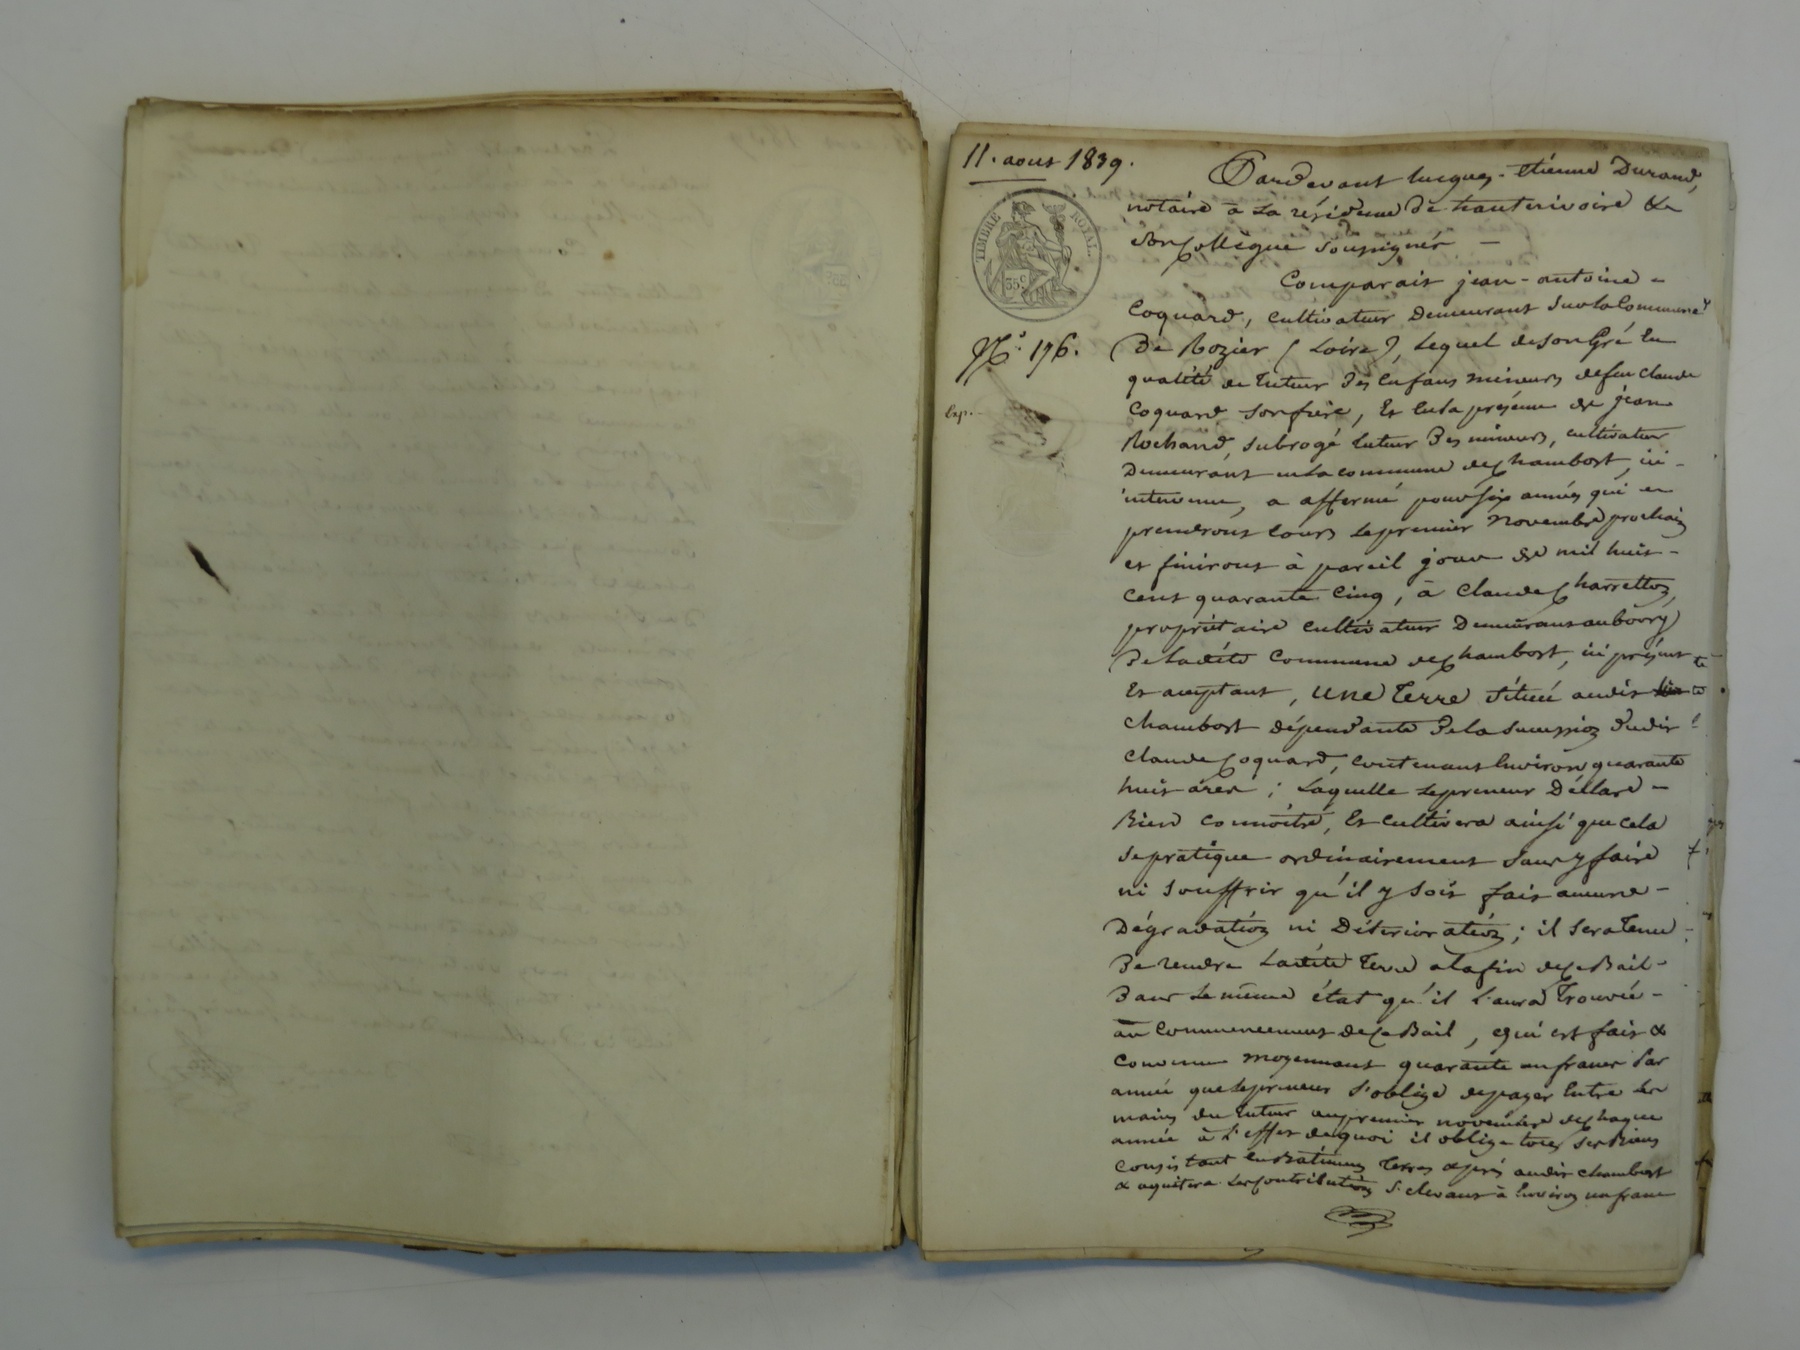 11. aout 1839.
TIMBRE ROYAL.
35c
No. 176.
Exp.
Pardevant Jacques-Etienne Durand,
notaire à la résidence de hauterivoire &
son Collègue soussignés —
Comparait jean-antoine
Coquard, cultivateur demeurant sur la Commune
de Rozier (Loire), lequel de son Gré En
qualité de tuteur des Enfans mineurs de feu Claude
Coquard son frere, Et En la présence de jean
Rochand, subrogé tuteur des mineurs, cultivateur
demeurant en la commune de Chambost, ici
intervenu, a affermé pour six années qui
prendront Cours le premier novembre prochain
et finiront à pareil jour de mil huit-
cent quarante Cinq, à Claude Charretton,
propriétaire cultivateur demeurant au bourg
de ladite Commune de Chambost, ici présent
Et acceptant, une Terre située audit
Chambost dépendante de la succession dudit
Claude Coquard, contenant Environ quarante
huit ares ; Laquelle le preneur Déclare
Bien connoitre, Et cultivera ainsi que cela
se pratique ordinairement sans y faire
ni souffrir qu'il y soit fait aucune
Dégradation ni Détérioration ; il sera Tenu
De rendre Ladite Terre a la fin de Ce Bail
Dans le même état qu'il L'aura Trouvée
au Commencement de Ce Bail, qui est fait &
Convenu moyennant quarante un francs Par
année que le preneur s'oblige de payer Entre les
mains du tuteur au premier novembre de Chaque
année à L'effet de quoi il oblige tous ses Biens
Consistant En Batimens Terres & prés audit Chambost
& aquitera Les Contributions s'élevant à Environ un franc